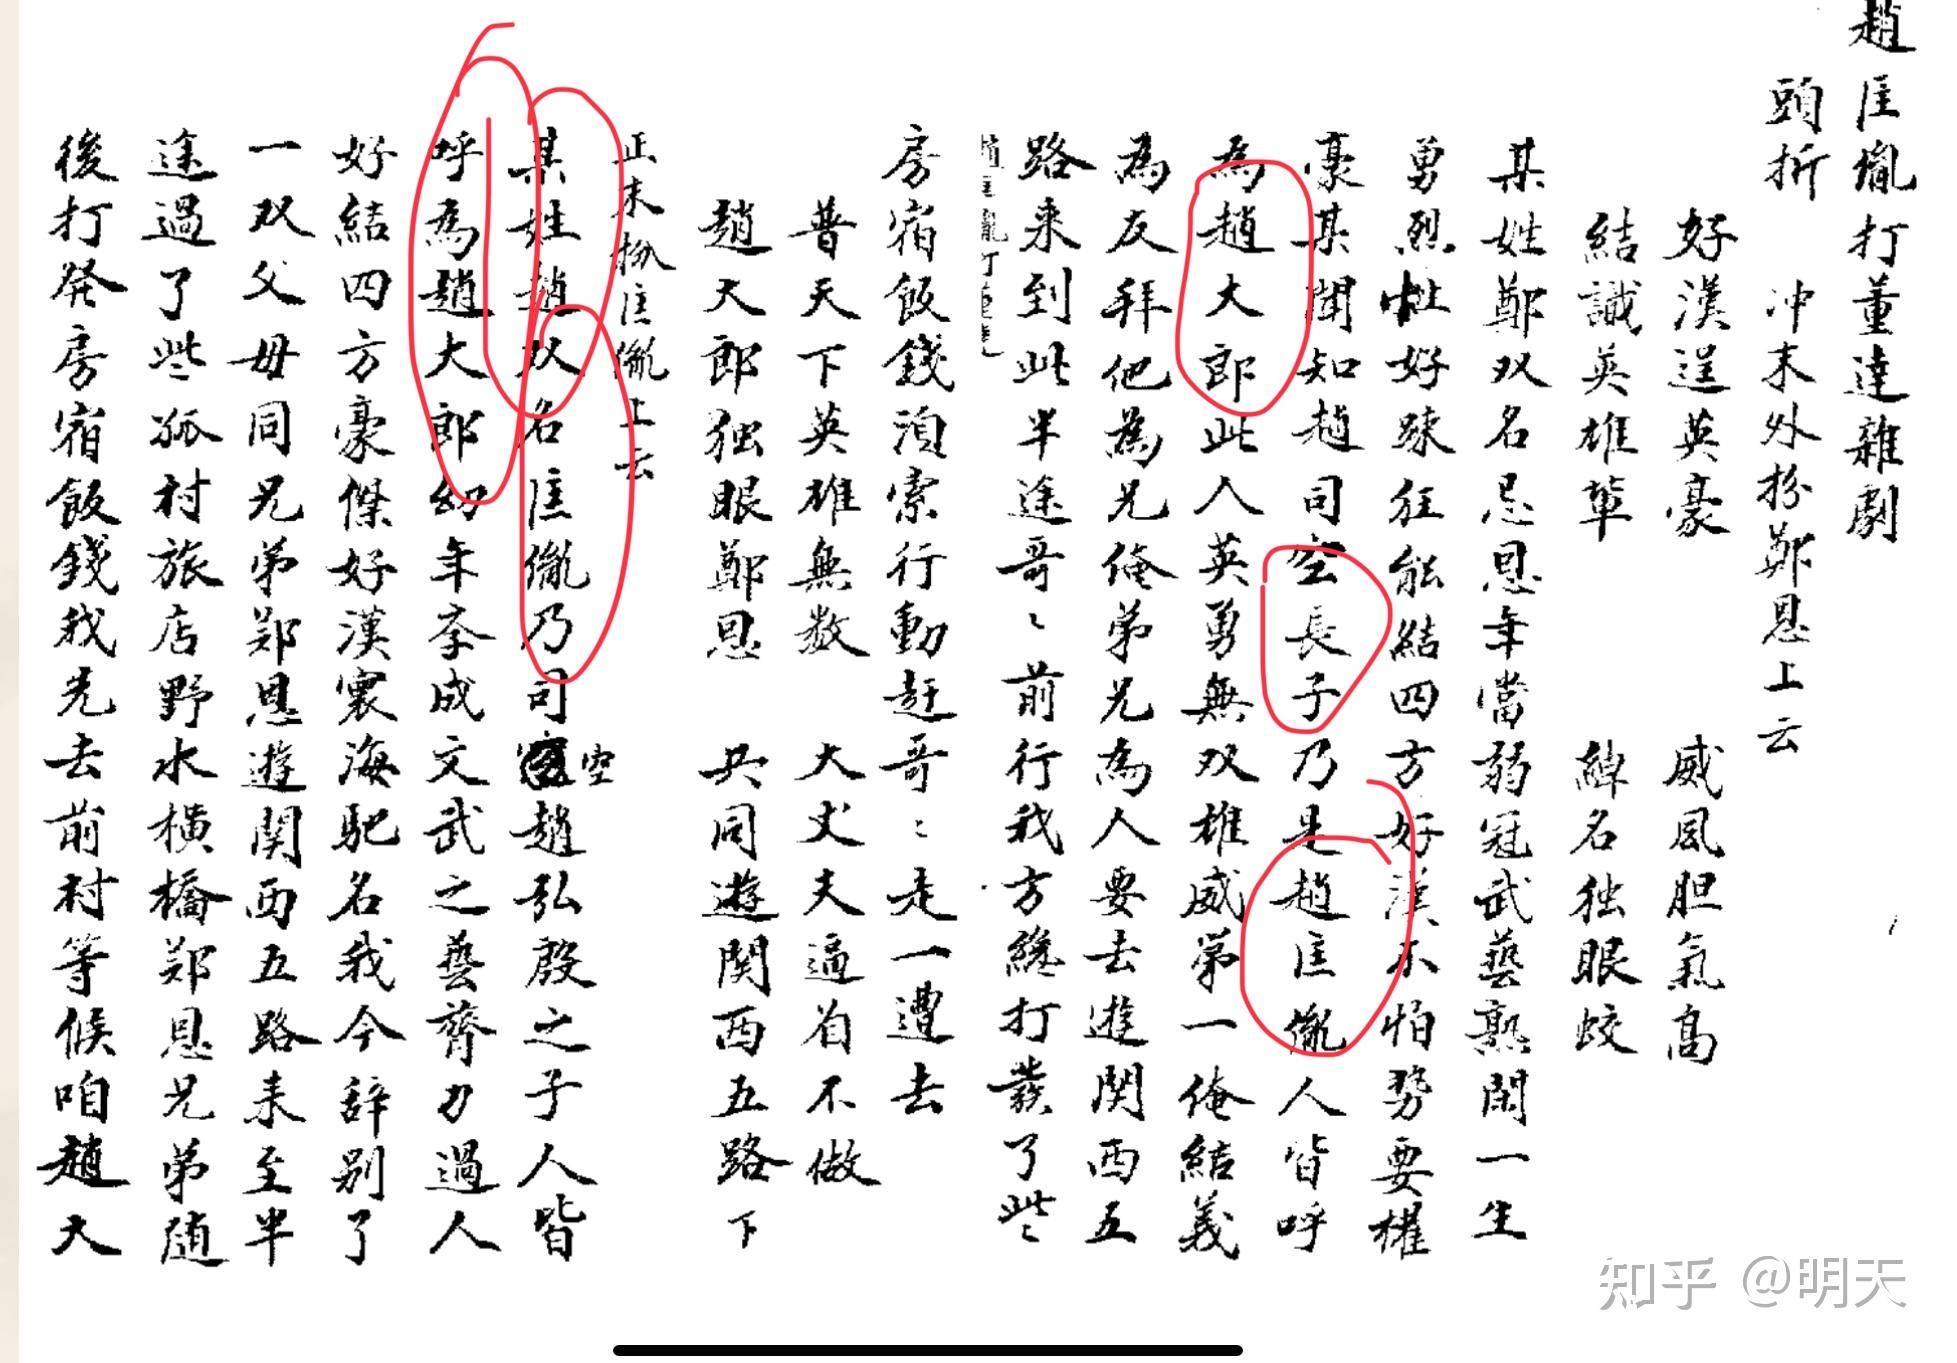 趙匡胤打董達雜劇
頭折　冲末外扮鄭恩上云
好漢逞英豪　威風胆氣高
結識英雄輩　綽名独眼蛟
某姓鄭双名忌恩年當弱冠武藝熟閑一生
勇烈性好踈狂能結四方好漢不怕势要權
豪某聞知趙司空長子乃是趙匡胤人皆呼
為趙大郎此人英勇無双雄威第一俺結義
為友拜他為兄俺弟兄為人要去遊関西五
路来到此半途哥〻前行我方纔打發了些
房宿飯錢湏索行動赶哥〻走一遭去
普天下英雄無数　大丈夫逼首不做
趙大郎独眼鄭恩　共同遊関西五路下
正末扮匡胤上云
某姓趙双名匡胤乃司空趙弘殷之子人皆
呼為趙大郎幼年李成文武之藝膂力過人
好結四方豪傑好漢寰海馳名我今辞别了
一双父母同兄弟郑恩遊関西五路来至半
途過了些孤村旅店野水横橋郑恩兄弟随
後打発房宿飯錢我先去前村等候咱趙大
知乎 @明天